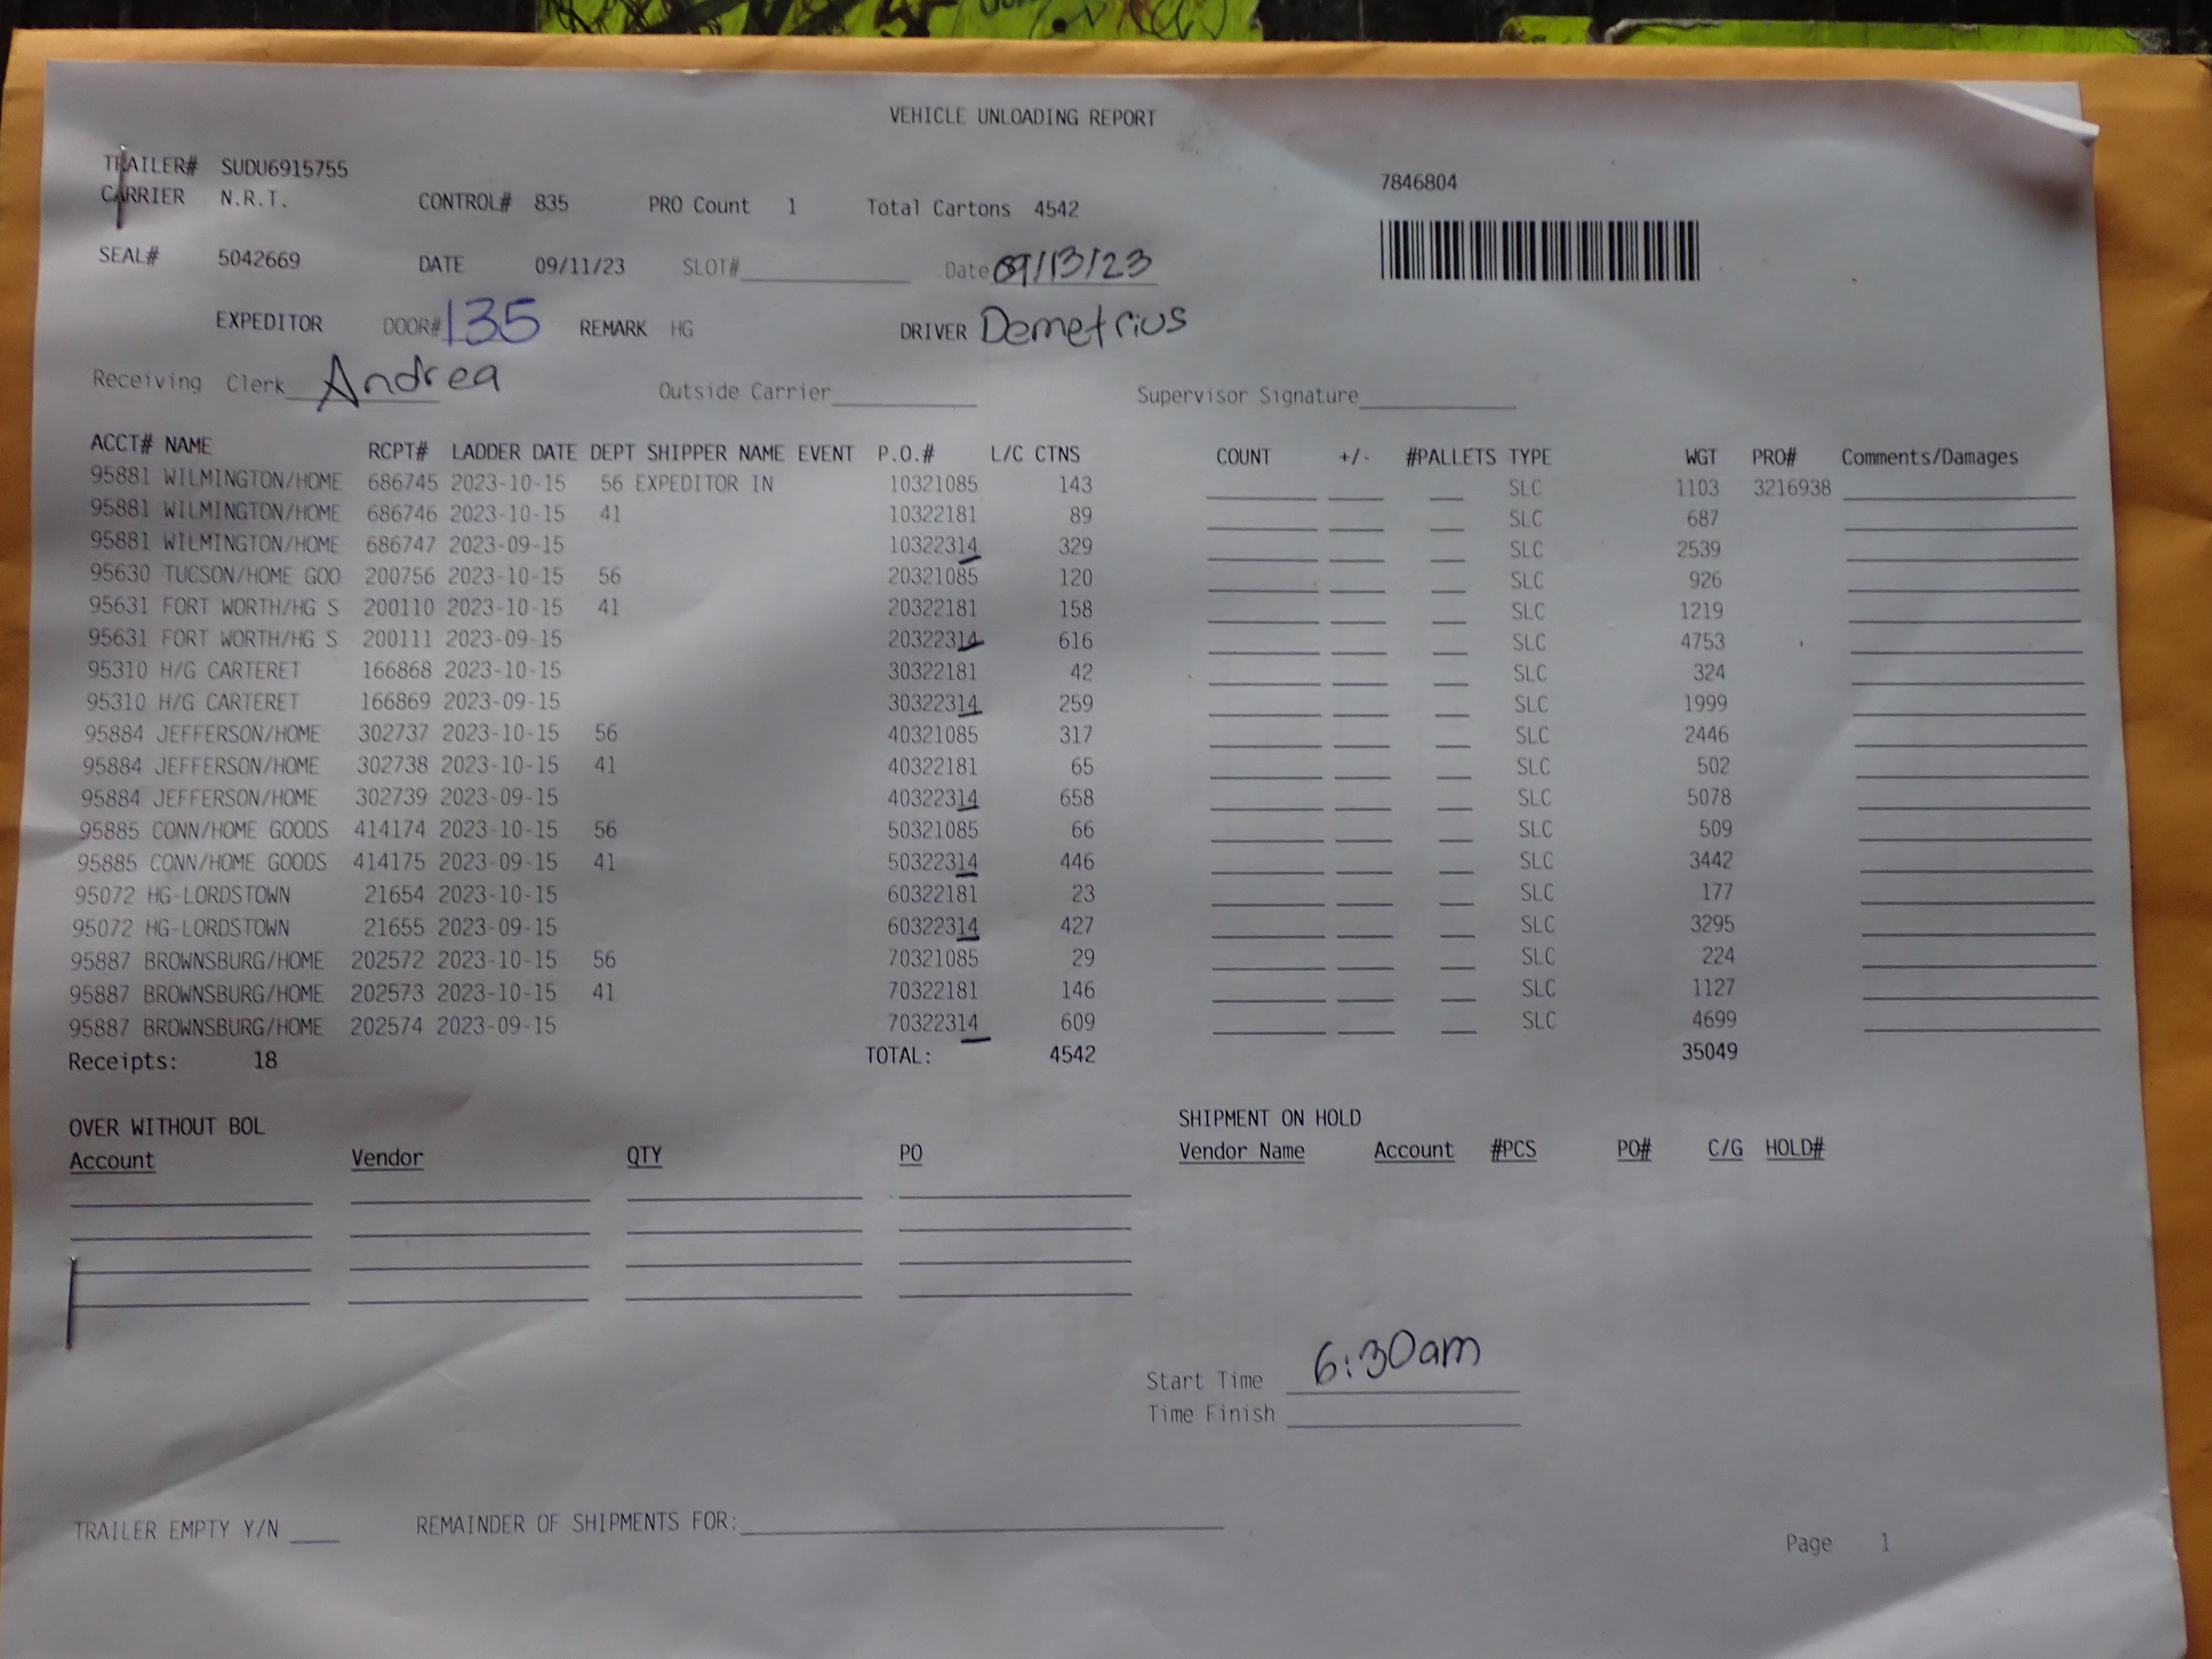 VEHICLE UNLOADING REPORT
TRAILER# SUDU6915755
7846804
CARRIER N.R.T. CONTROL# 835 PRO Count 1 Total Cartons 4542
SEAL# 5042669 DATE 09/11/23 SLOT# Date 09/13/23
EXPEDITOR DOOR# 135 REMARK HG DRIVER Demetrius
Receiving Clerk Andrea Outside Carrier Supervisor Signature
ACCT# NAME RCPT# LADDER DATE DEPT SHIPPER NAME EVENT P.O.# L/C CTNS COUNT +/- #PALLETS TYPE WGT PRO# Comments/Damages
95881 WILMINGTON/HOME 686745 2023-10-15 56 EXPEDITOR IN 10321085 143 SLC 1103 3216938
95881 WILMINGTON/HOME 686746 2023-10-15 41 10322181 89 SLC 687
95881 WILMINGTON/HOME 686747 2023-09-15 10322314 329 SLC 2539
95630 TUCSON/HOME GOO 200756 2023-10-15 56 20321085 120 SLC 926
95631 FORT WORTH/HG S 200110 2023-10-15 41 20322181 158 SLC 1219
95631 FORT WORTH/HG S 200111 2023-09-15 20322314 616 SLC 4753
95310 H/G CARTERET 166868 2023-10-15 30322181 42 SLC 324
95310 H/G CARTERET 166869 2023-09-15 30322314 259 SLC 1999
95884 JEFFERSON/HOME 302737 2023-10-15 56 40321085 317 SLC 2446
95884 JEFFERSON/HOME 302738 2023-10-15 41 40322181 65 SLC 502
95884 JEFFERSON/HOME 302739 2023-09-15 40322314 658 SLC 5078
95885 CONN/HOME GOODS 414174 2023-10-15 56 50321085 66 SLC 509
95885 CONN/HOME GOODS 414175 2023-09-15 41 50322314 446 SLC 3442
95072 HG-LORDSTOWN 21654 2023-10-15 60322181 23 SLC 177
95072 HG-LORDSTOWN 21655 2023-09-15 60322314 427 SLC 3295
95887 BROWNSBURG/HOME 202572 2023-10-15 56 70321085 29 SLC 224
95887 BROWNSBURG/HOME 202573 2023-10-15 41 70322181 146 SLC 1127
95887 BROWNSBURG/HOME 202574 2023-09-15 70322314 609 SLC 4699
Receipts: 18 TOTAL: 4542 35049
OVER WITHOUT BOL SHIPMENT ON HOLD
Account Vendor QTY PO Vendor Name Account #PCS PO# C/G HOLD#
Start Time 6:30am
Time Finish
TRAILER EMPTY Y/N REMAINDER OF SHIPMENTS FOR:
Page 1